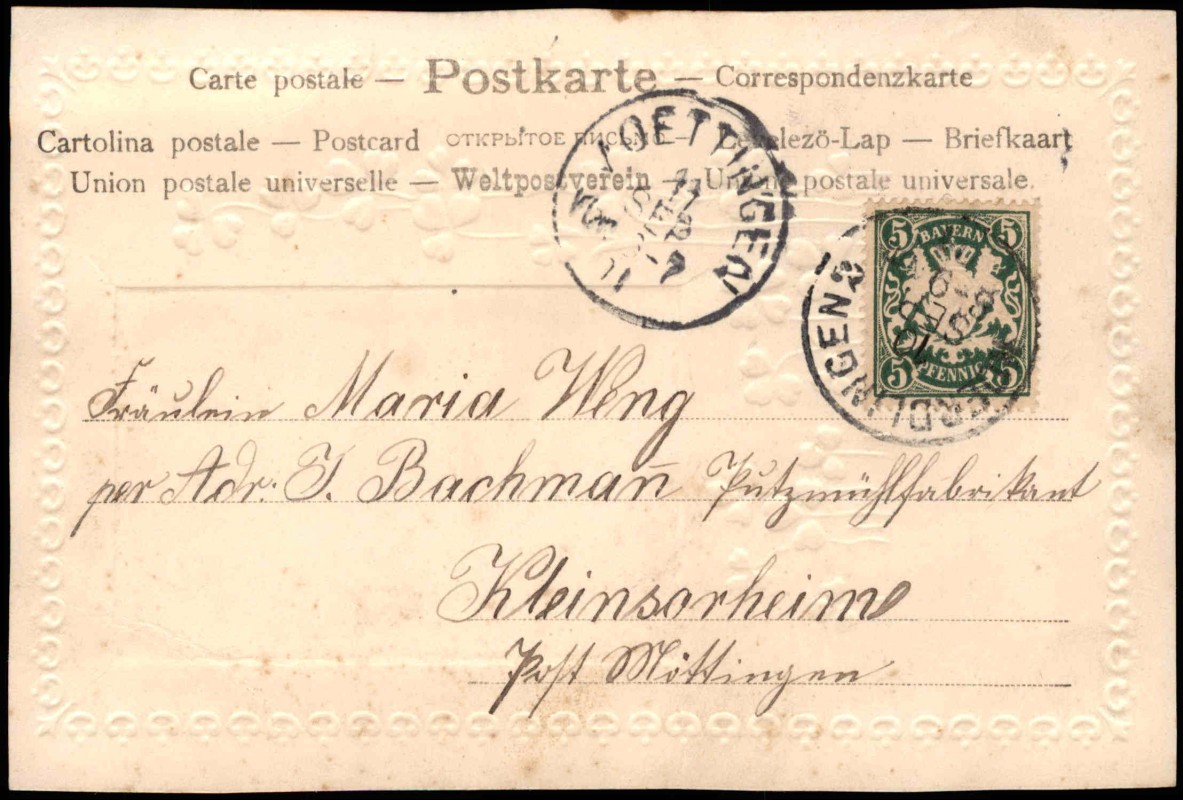 Carte postale — Postkarte — Correspondenzkarte
Cartolina postale — Postcard ОТКРЫТОЕ ПИСЬМО — Levelező-Lap — Briefkaart
Union postale universelle — Weltpostverein — Union postale universale.
OETTINGEN
11
SEP
5 BAYERN 5
5 PFENNIG 5
10
SEP
8-9
Fräulein Maria Weng
per Adr. J. Bachmann̄ Putzmühlfabrikant
Kleinsorheim
Post Möttingen